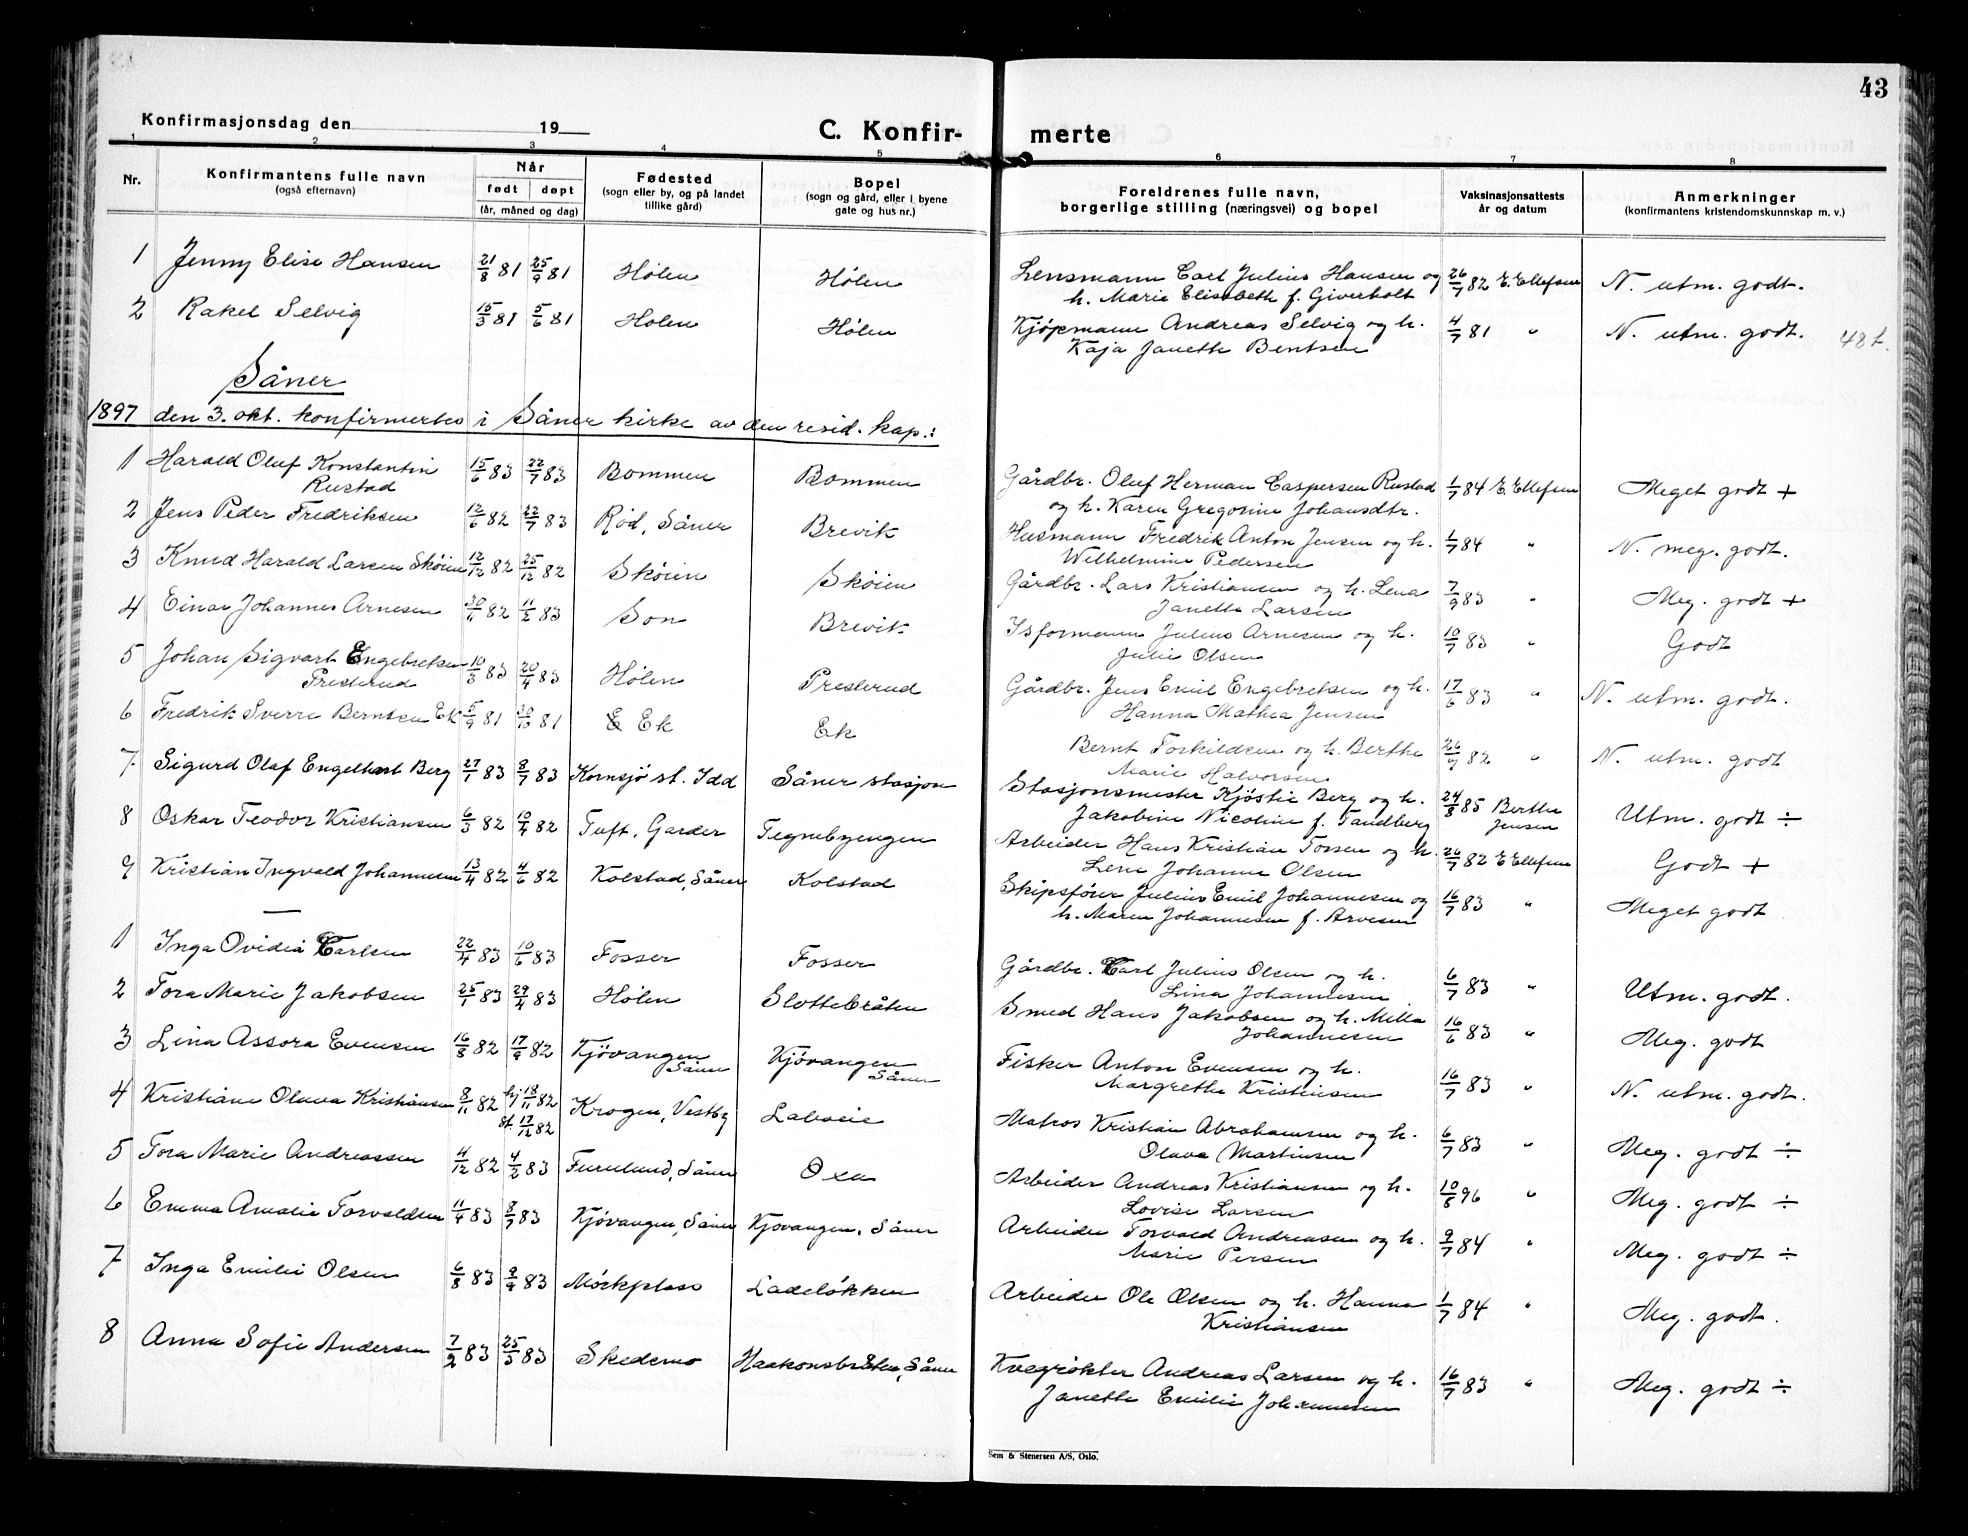 43
Konfirmasjonsdag den 19
C. Konfir- merte
1 2 3 4 5 6 7 8
Nr. Konfirmantens fulle navn (også efternavn) Når født døpt (år, måned og dag) Fødested (sogn eller by, og på landet tillike gård) Bopel (sogn og gård, eller i byene gate og hus nr.) Foreldrenes fulle navn, borgerlige stilling (næringsvei) og bopel Vaksinasjonsattests år og datum Anmerkninger (konfirmantens kristendomskunnskap m. v.)
1 Jenny Elise Hansen 21/8 81 25/9 81 Hølen Hølen Lensmann Carl Julius Hansen og 26/7 82 E. Ellefsen N. utm. godt.
h. Marie Elisabeth f. Giverholt
2 Rakel Selvig 15/3 81 5/6 81 Hølen Hølen Kjøpmann Andreas Selvig og h. 4/7 81 " N. utm. godt. 48 f.
Kaja Janette Bentsen
Såner
1897 den 3. okt. konfirmertes i Såner kirke av den resid. kap.:
1 Harald Oluf Konstantin 15/6 83 22/7 83 Bommen Bommen Gårdbr. Oluf Herman Caspersen Rustad 1/7 84 E. Ellefsen Meget godt +
Rustad og h. Karen Gregorine Johansdtr.
2 Jens Peder Fredriksen 12/6 82 22/7 83 Rød, Såner Brevik Husmann Fredrik Anton Jensen og h. 1/7 84 " N. meg. godt.
Wilhelmine Pedersen
3 Knud Harald Larsen Skøien 12/12 82 25/12 82 Skøien Skøien Gårdbr. Lars Kristiansen og h. Lena 7/9 83 " Meg. godt +
Janette Larsen
4 Einar Johannes Arnesen 30/11 82 11/2 83 Son Brevik Isformann Julius Arnesen og h. 10/7 83 " Godt
Julie Olsen
5 Johan Sigvart Engebretsen 10/3 83 20/4 83 Hølen Presterud Gårdbr. Jens Emil Engebretsen og h. 17/6 83 " N. utm. godt.
Presterud Hanna Mathea Jensen
6 Fredrik Sverre Berntsen Ek 5/9 81 30/10 81 Ek Ek Bernt Torkildsen og h. Berthe 82 " N. utm. godt
Marie Halvorsen
7 Sigurd Olaf Engelhart Berg 27/1 83 8/7 83 Kornsjø st. Idd Såner stasjon Stasjonsmester Kjøstie Berg og h. 24/8 85 Berthe Jensen Utm. godt ÷
Jakobine Nicoline f. Tandberg
8 Oskar Teodor Kristiansen 6/3 82 10/4 82 Tuft, Garder Tegnebyengen Arbeider Hans Kristian Tossen og h. 26/7 82 E. Ellefsen Godt +
Lene Johanne Olsen
9 Kristian Ingvald Johannesen 13/4 82 4/6 82 Kolstad, Såner Kolstad Skipsfører Julius Emil Johannesen og 16/7 83 " Meget godt
h. Maren Johannesen f. Arvesen
1 Inga Ovidia Carlsen 22/4 83 10/6 83 Fosser Fosser Gårdbr. Carl Julius Olsen og h. 6/7 83 " Utm. godt.
Lina Johannesen
2 Tora Marie Jakobsen 25/1 83 29/4 83 Hølen Slottebråten Smed Hans Jakobsen og h. Milla 16/6 83 " Meg. godt
Johannesen
3 Lina Assora Evensen 16/8 82 17/9 82 Kjøvangen Såner Kjøvangen Såner Fisker Anton Evensen og h. 16/7 83 " N. utm. godt.
Margrethe Kristinsen
4 Kristiane Olava Kristiansen 8/11 82 hj 18/11 82 Krogen, Vestby Labseie Matros Kristian Abrahamsen og h. 6/7 83 " Meg. godt ÷
st. 17/12 82 Olava Martinsen
5 Tora Marie Andreassen 4/12 82 4/2 83 Furulund, Såner Oxa Arbeider Andreas Kristiansen og h. 10/8 96 " Meg. godt ÷
Lovise Larsen
6 Emma Amalie Torvaldsen 11/4 83 8/7 83 Kjøvangen, Såner Kjøvangen, Såner Arbeider Torvald Andreasen og h. 9/7 84 " Meg. godt ÷
Marie Persen
7 Inga Emilie Olsen 6/8 83 9/9 83 Mørkplass Ladeløkken Arbeider Ole Olsen og h. Hanna 1/7 84 " Meg. godt.
Kristiansen
8 Anna Sofie Andersen 7/2 83 25/3 83 Skedsmo Haakonsbråten, Såner Kvegrøkter Andreas Larsen og h. 16/7 83 " Meg. godt ÷
Janette Emilie Johannesen
Sem & Stenersen A/S, Oslo.